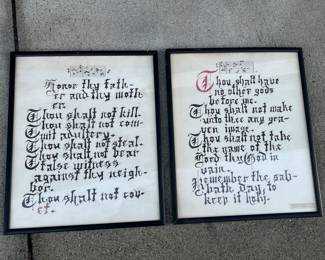 Honor thy fath-
er and thy moth
er.
Thou shalt not kill.
Thou shalt not com-
mit adultery.
Thou shalt not steal.
Thou shalt not bear
false witness
against thy neigh-
bor.
Thou shalt not cov-
et.
Thou shalt have
no other gods
before me.
Thou shalt not make
unto thee any gra-
ven image.
Thou shalt not take
the name of the
Lord thy God in
vain.
Remember the sab-
bath day, to
keep it holy.